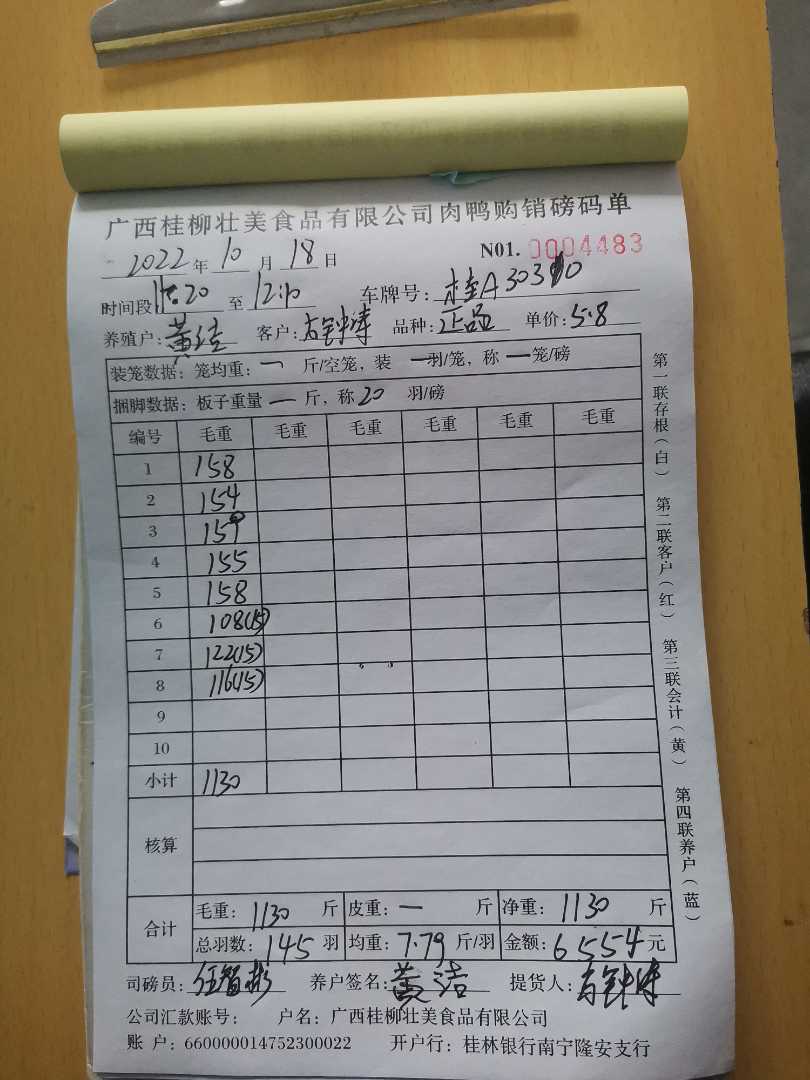 广西桂柳壮美食品有限公司肉鸭购销磅码单
2022年10月18日 N01. 0004483
时间段 至 12:10 车牌号: 桂A303
养殖户: 黄洁 客户: 方钟涛 品种: 正品 单价: 5.8
装笼数据: 笼均重: 一 斤/空笼, 装 一 羽/笼, 称 一 笼/磅
捆脚数据: 板子重量 一 斤, 称 20 羽/磅
编号 毛重 毛重 毛重 毛重 毛重 毛重
1 158
2 154
3 159
4 155
5 158
6 108(15)
7 122(15)
8 116(15)
9
10
小计 1130
核算
合计 毛重: 1130 斤 皮重: 一 斤 净重: 1130 斤
总羽数: 145 羽 均重: 7.79 斤/羽 金额: 6554元
司磅员: 伍智彬 养户签名: 黄洁 提货人: 方钟涛
公司汇款账号: 户名: 广西桂柳壮美食品有限公司
账 户: 660000014752300022 开户行: 桂林银行南宁隆安支行
第一联存根(白) 第二联客户(红) 第三联会计(黄) 第四联养户(蓝)